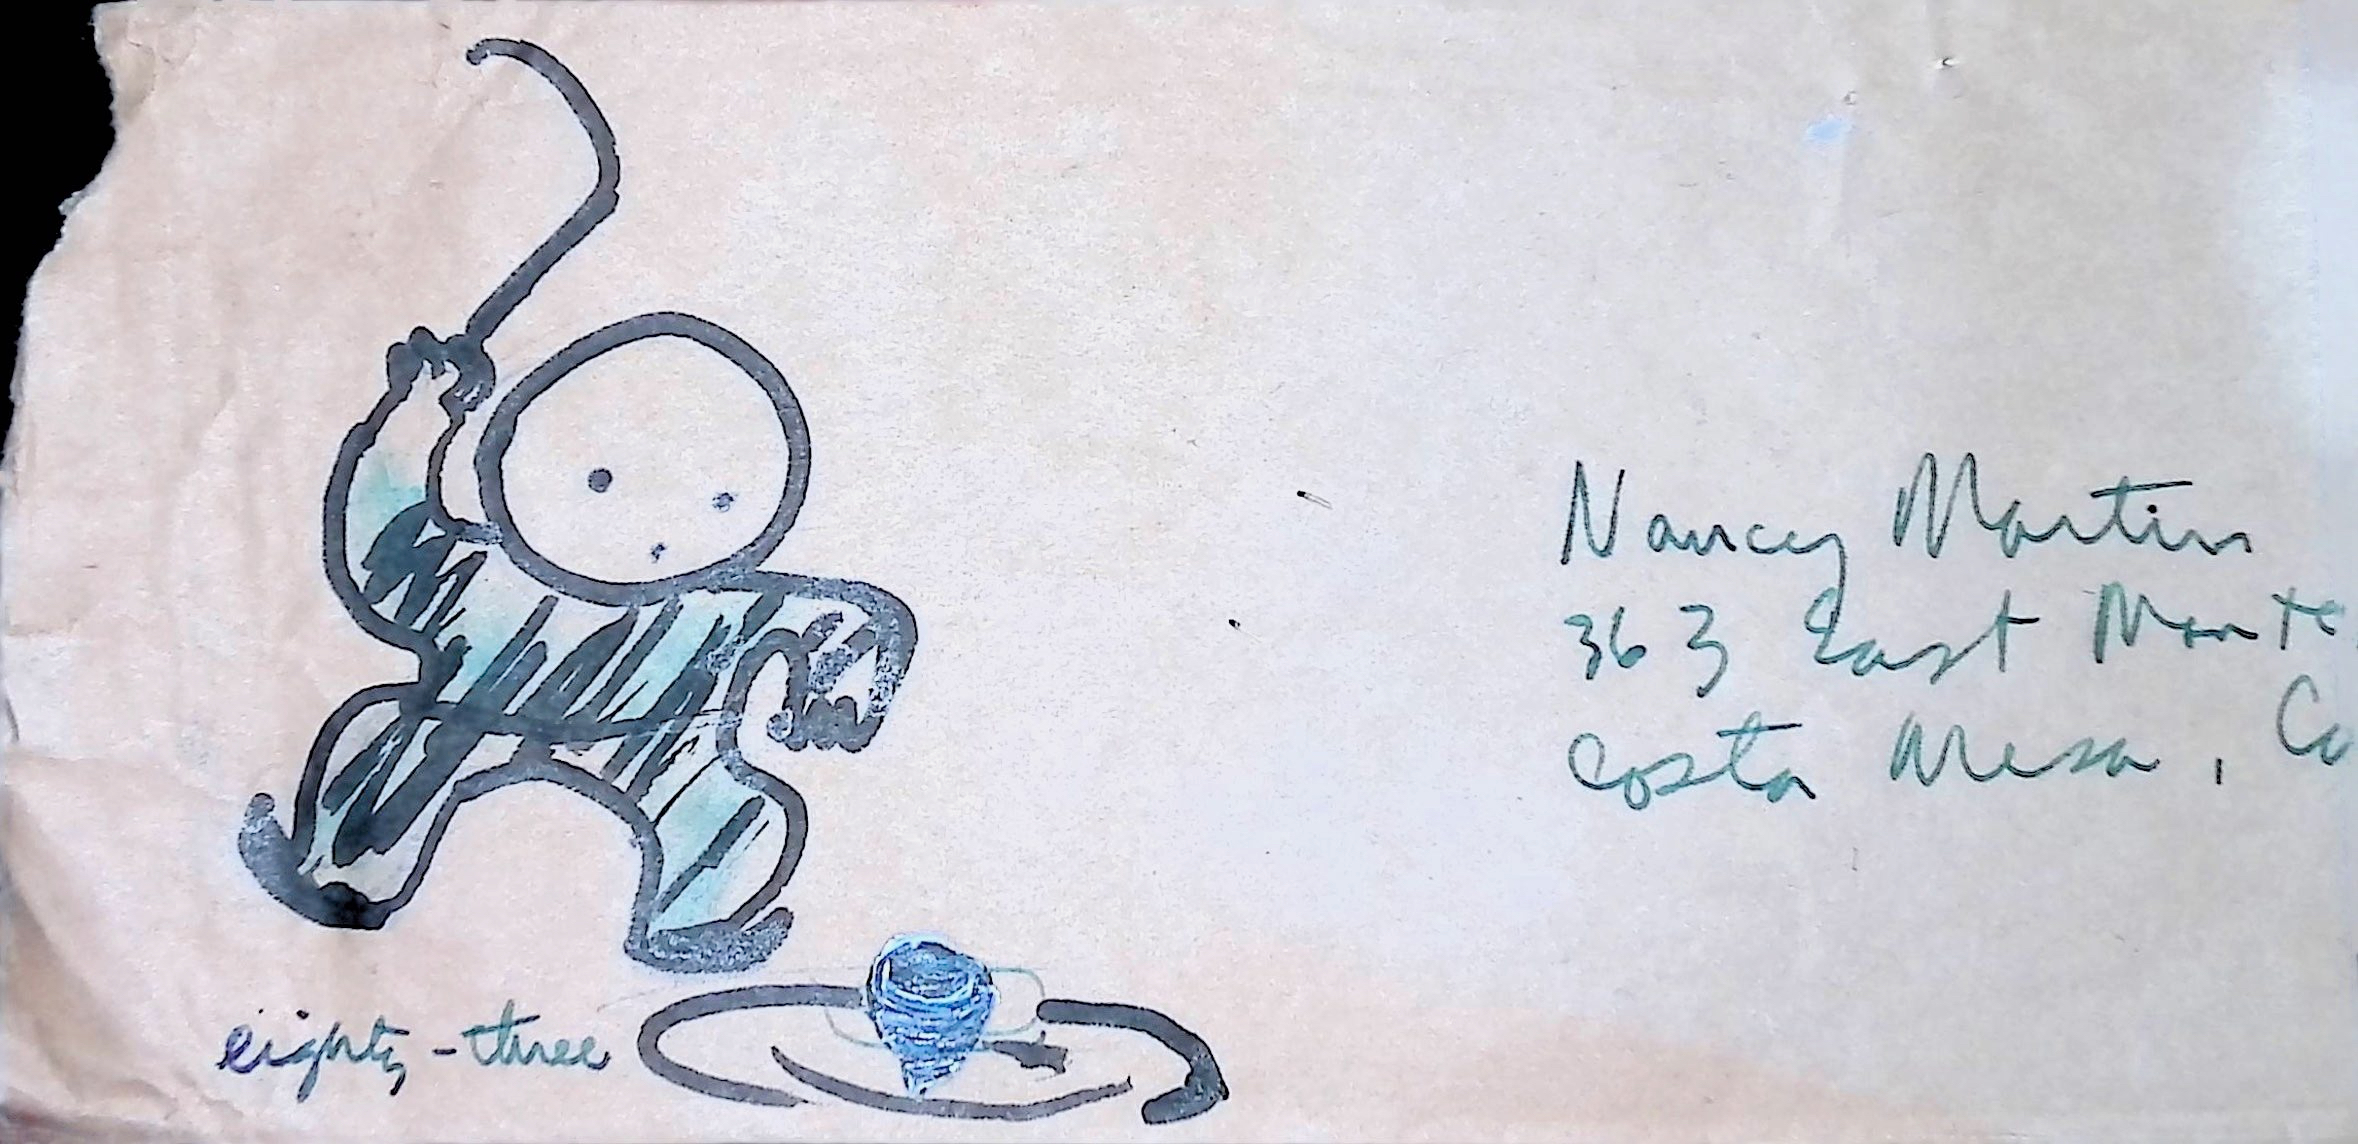 Nancy Martin
363 East Monte
Costa Mesa, Ca
eighty-three